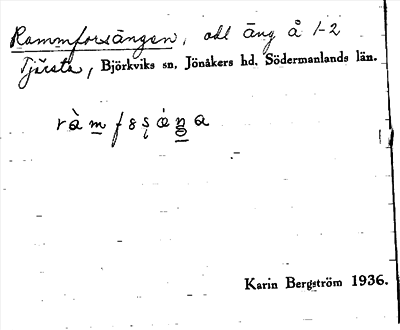 Rammforsängen, odl äng å 1-2
Tjärsta, Björkviks sn, Jönåkers hd, Södermanlands län.
Karin Bergström 1936.